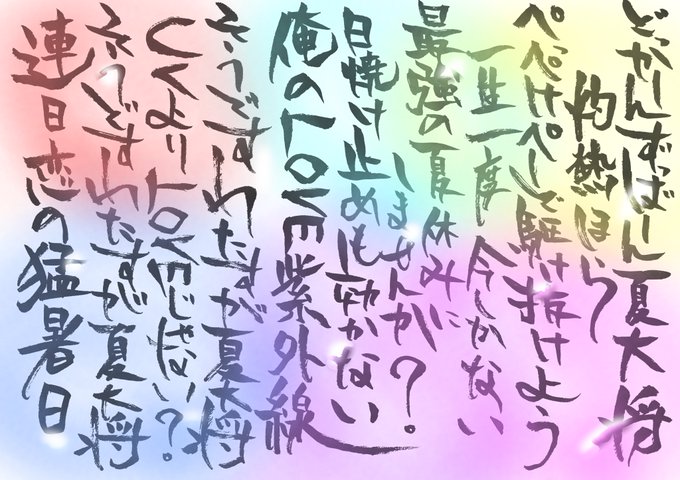 どっかーんずっばーん夏大将
灼熱ほいっ
ぺぺけぺーで駆け抜けよう
一生一度 今しかない
最強の夏休みに
しませんか?。
日焼け止めも効かない
俺のLOVE紫外線
そうですわたすが夏大将
CCよりLOVEじゃない?
そうですわたすが夏大将
連日恋の猛暑日